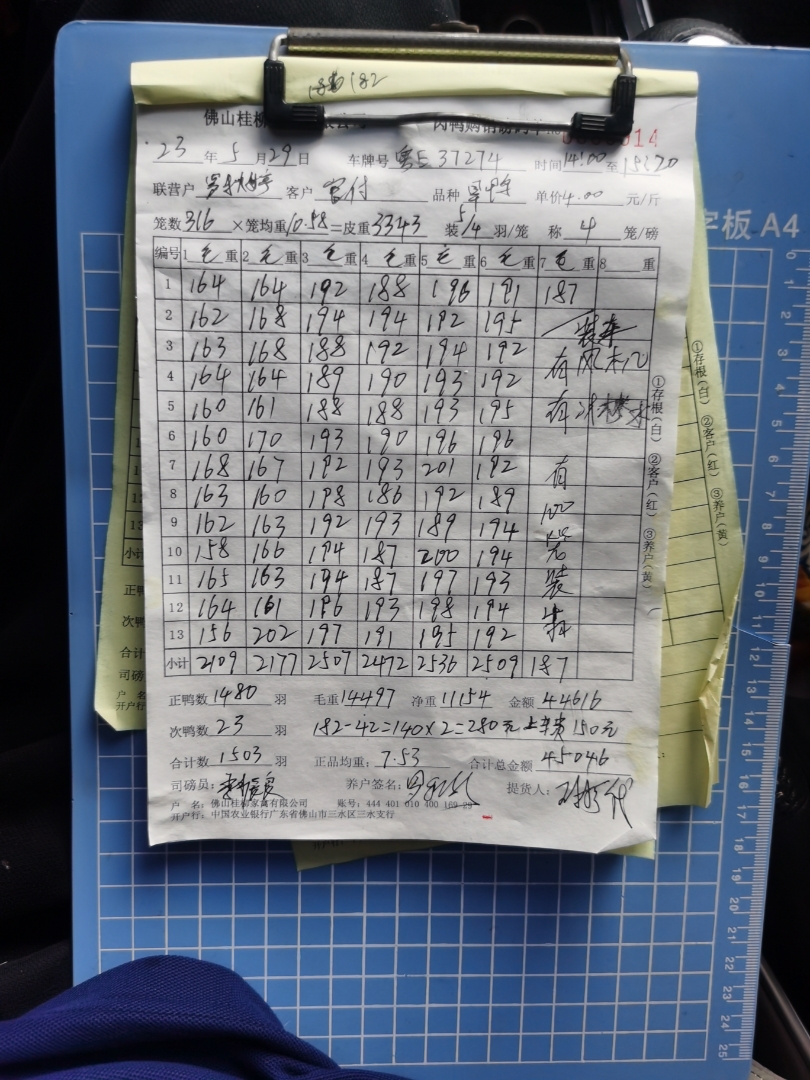 182
佛山桂柳
14
23 年 5 月 29 日 车牌号 粤E37274 时间 14:00 至 15:20
联营户 客户 品种 单价 4.00 元/斤
笼数 316 ×笼均重 10.58 =皮重 3343 装 5/4 羽/笼 称 4 笼/磅
编号 1 毛 重 2 毛 重 3 毛 重 4 毛 重 5 毛 重 6 毛 重 7 毛 重 8 重
1 164 164 192 188 196 191 187
2 162 168 194 194 192 195 装车
3 163 168 188 192 194 192 有风
4 164 164 189 190 193 192
5 160 161 188 188 193 195 有冰
6 160 170 193 190 196 196
7 168 167 192 193 201 192 有
8 163 160 198 186 192 189
9 162 163 192 193 189 194
10 158 166 194 187 200 194
11 165 163 194 187 197 193 装
12 164 161 196 193 198 194
13 156 202 197 191 195 192
小计 2109 2177 2507 2472 2536 2509 187
正鸭数 1480 羽 毛重 14497 净重 11154 金额 44616
次鸭数 23 羽 182-42=140×2=280元 上车费 150元
合计数 1503 羽 正品均重: 7.53 合计总金额 45046
司磅员: 养户签名: 提货人:
户 名: 佛山桂柳家禽有限公司 账号: 444 401 010 400 169 29
开户行: 中国农业银行广东省佛山市三水区三水支行
①存根(白) ②客户(红) ③养户(黄)
①存根(白) ②客户(红) ③养户(黄)
字板 A4
0
1
2
3
4
5
6
7
8
9
10
11
12
13
14
15
16
17
18
19
20
21
22
23
24
25